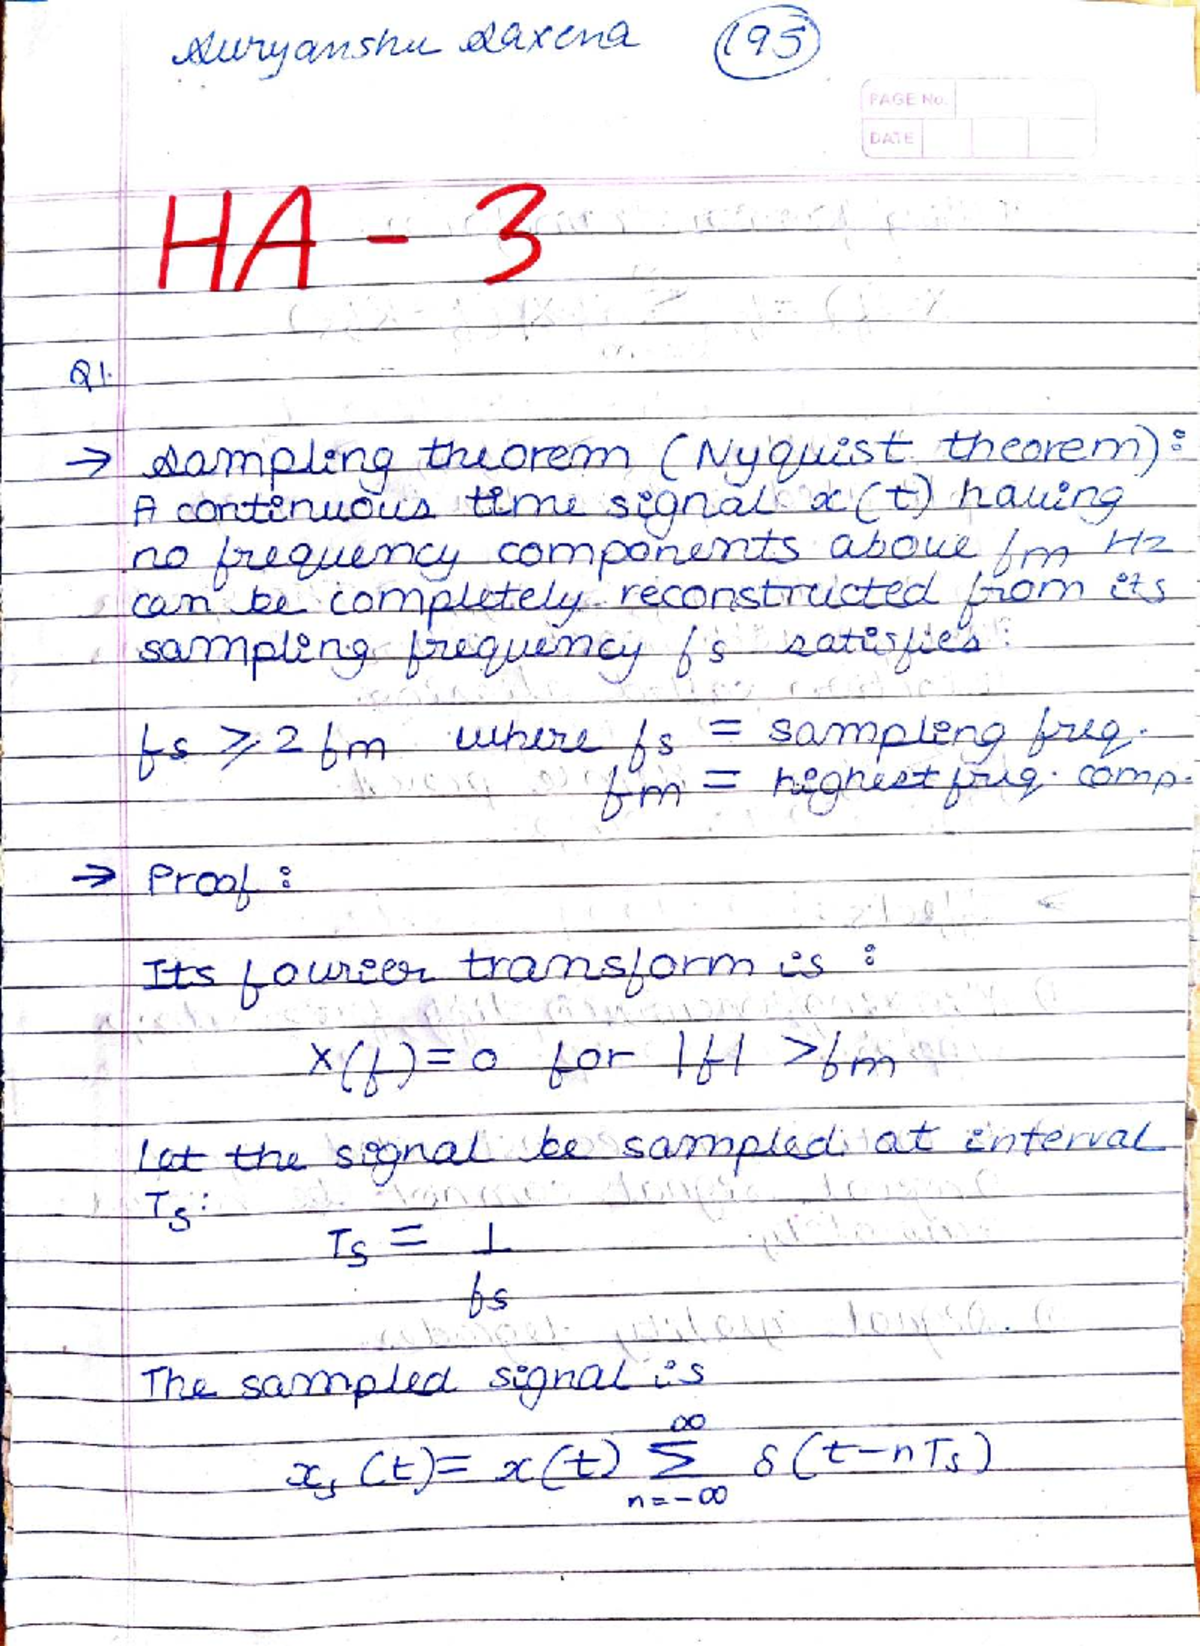 Suryanshu Saxena (195)
PAGE No.
DATE
HA - 3
Q1.
→ Sampling theorem (Nyquist theorem):
A continuous time signal x(t) having
no frequency components above fm Hz
can be completely reconstructed from its
sampling frequency fs satisfies:
fs ≥ 2fm where fs = sampling freq.
fm = highest freq. comp.
→ Proof:
Its fourier transform is:
X(f) = 0 for |f| > fm
Let the signal be sampled at interval
Ts:
Ts = 1
fs
The sampled signal is
∞
xs(t) = x(t) Σ δ(t-nTs)
n=-∞